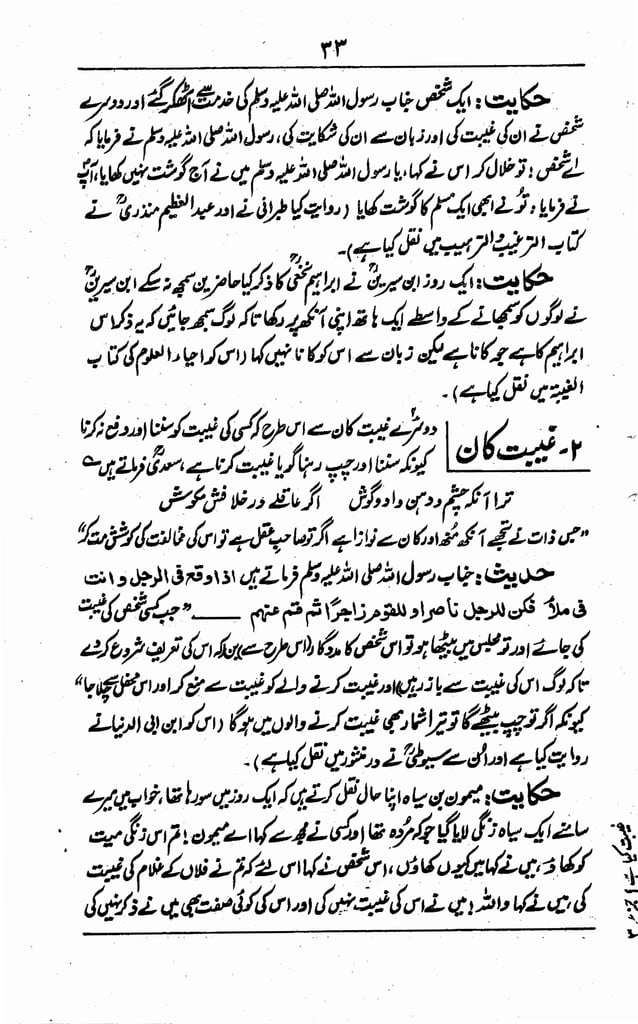 ۳۳
حکایت: ایک شخص جناب رسول اللہ صلی اللہ علیہ وسلم کی خدمت سے اٹھ کر گئے اور دوسرے
شخص نے ان کی غیبت کی اور زبان سے ان کی شکایت کی، رسول اللہ صلی اللہ علیہ وسلم نے فرمایا کہ
اے شخص: تو خلال کر اس نے کہا، یا رسول اللہ صلی اللہ علیہ وسلم میں نے آج گوشت نہیں کھایا، آپ
نے فرمایا: تُو نے ابھی ایک مسلم کا گوشت کھایا (روایت کیا طبرانی نے اور عبدالعظیم منذریؒ نے
کتاب الترغیب والترہیب میں نقل کیا ہے)۔
حکایت: ایک روز ابن سیرینؒ نے ابراہیم نخعیؒ کا ذکر کیا حاضرین سمجھ نہ سکے ابن سیرینؒ
نے لوگوں کو سمجھانے کے واسطے ایک ہاتھ اپنی آنکھ پر رکھا تاکہ لوگ سمجھ جائیں کہ یہ ذکر اس
ابراہیم کا ہے جو کانا ہے لیکن زبان سے اس کو کانا نہیں کہا (اس کو احیاء العلوم کی کتاب
الغیبۃ میں نقل کیا ہے)۔
۲۔ غیبت کان
دوسرے غیبت کان سے اس طرح کہ کسی کی غیبت کو سننا اور دفع نہ کرنا
کیونکہ سننا اور چپ رہنا گویا غیبت کرنا ہے، سعدیؒ فرماتے ہیں ؎
ترا آنکہ چشم و دہن داد و گوش اگر عاقلے در خلافش مکوش
”جس ذات نے تجھے آنکھ منھ اور کان سے نوازا ہے اگر تو صاحب عقل ہے تو اس کی مخالفت کی کوشش مت کر“
حدیث: جناب رسول اللہ صلی اللہ علیہ وسلم فرماتے ہیں اذا وقع فی الرجل وانت
فی ملأ فکن للرجل ناصرا وللقوم زاجرًا ثم قم عنہم ــــــ ”جب کسی شخص کی غیبت
کی جائے اور تو مجلس میں بیٹھا ہو تو اس شخص کا مددگار (اس طرح سے) بن کہ اس کی تعریف شروع کردے
تاکہ لوگ اس کی غیبت سے باز رہیں) اور غیبت کرنے والے کو غیبت سے منع کر اور اس محفل سے چلا جا“
کیونکہ اگر تو چپ بیٹھے گا تو تیرا شمار بھی غیبت کرنے والوں میں ہوگا (اس کو ابن ابی الدنیا نے
روایت کیا ہے اور اُن سے سیوطیؒ نے درمنثور میں نقل کیا ہے)۔
حکایت: میمون بن سیاہ اپنا حال نقل کرتے ہیں کہ ایک روز میں سو رہا تھا، خواب میں میرے
سامنے ایک سیاہ زنگی لایا گیا جو کہ مُردہ تھا اور کسی نے مجھ سے کہا اے میمون! تم اس زنگی میت
کو کھاؤ، میں نے کہا میں کیوں کھاؤں، اس شخص نے کہا اس لئے کہ تم نے فلاں کے غلام کی غیبت
کی، میں نے کہا واللہ! میں نے اس کی غیبت نہیں کی اور اس کی کوئی صفت بھی میں نے ذکر نہیں کی
غیبت کیا ہے